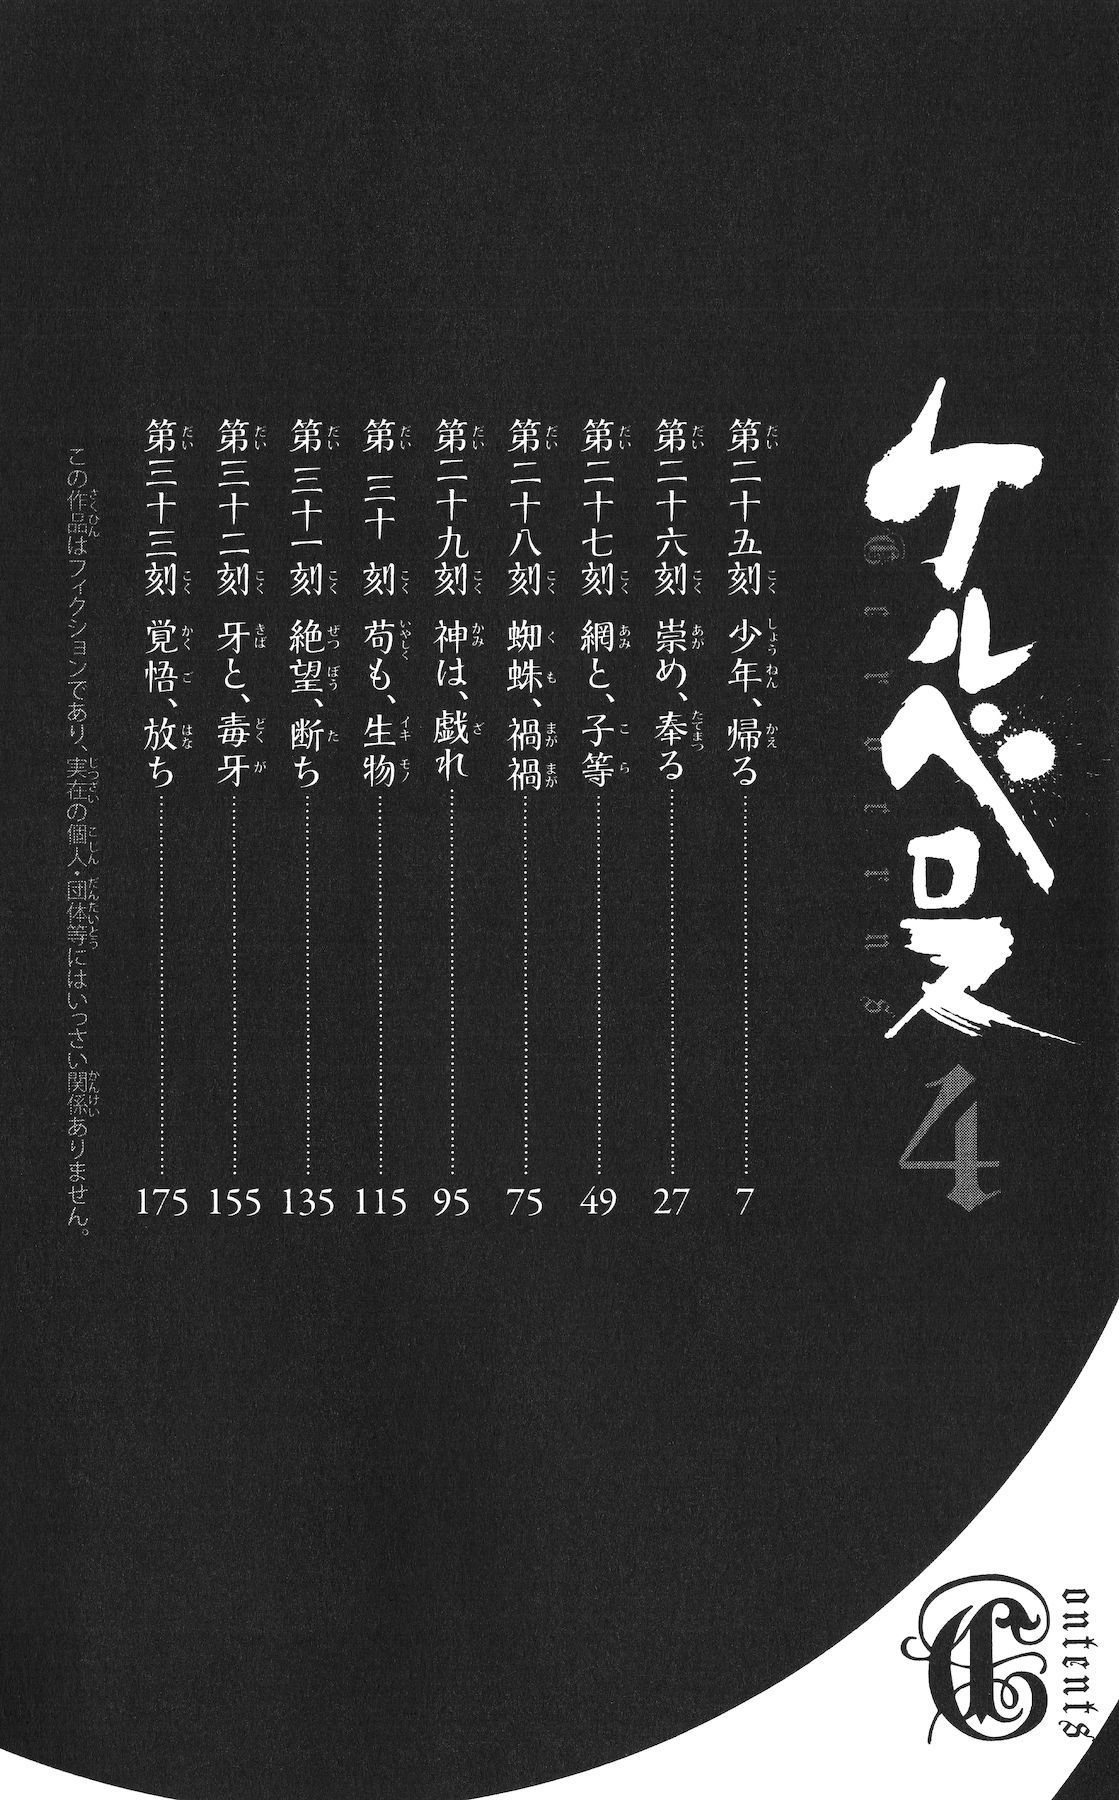 ケルベロス
Cerberus
4
第二十五刻 少年、帰る 7
第二十六刻 崇め、奉る 27
第二十七刻 網と、子等 49
第二十八刻 蜘蛛、禍禍 75
第二十九刻 神は、戯れ 95
第三十刻 苟も、生物 115
第三十一刻 絶望、断ち 135
第三十二刻 牙と、毒牙 155
第三十三刻 覚悟、放ち 175
この作品はフィクションであり、実在の個人・団体等にはいっさい関係ありません。
Contents